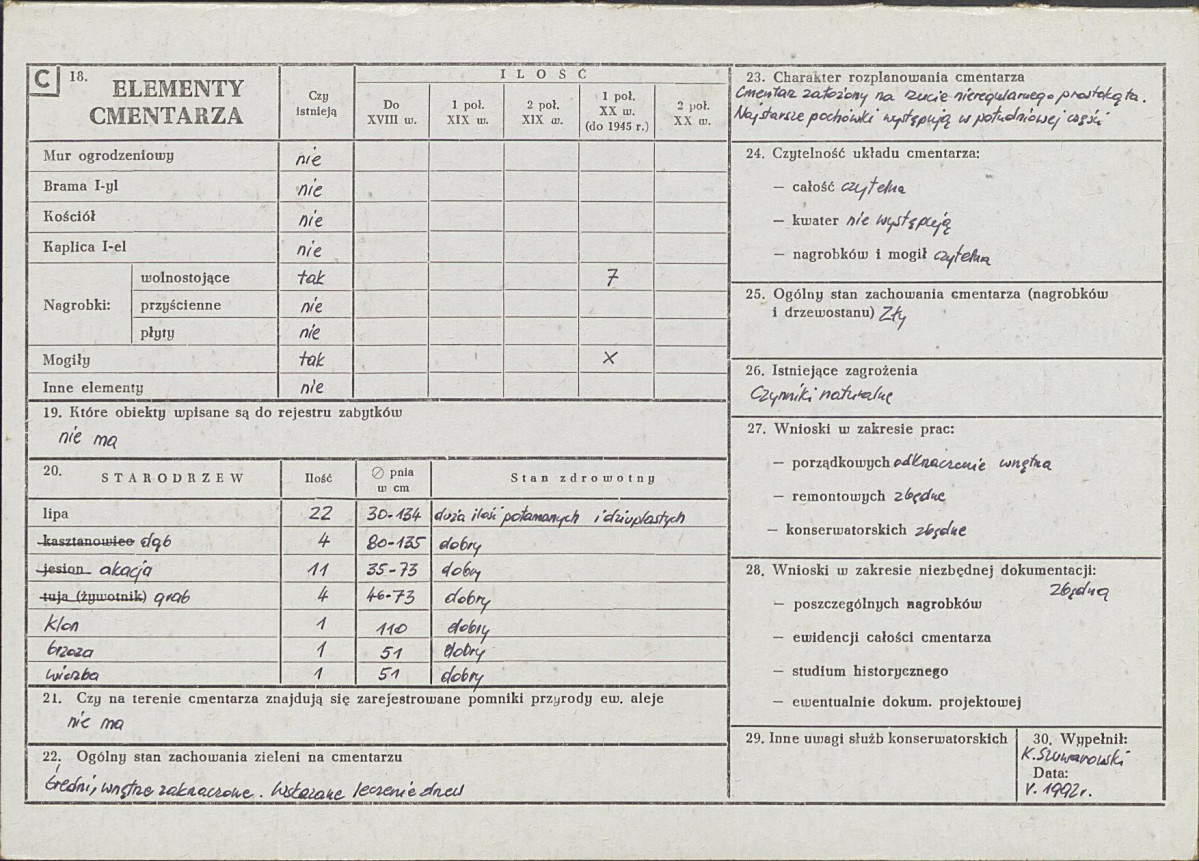 C 18. ELEMENTY CMENTARZA
Czy istnieją
ILOŚĆ
Do XVIII w.
1 poł. XIX w.
2 poł. XIX w.
1 poł. XX w. (do 1945 r.)
2 poł. XX w.
Mur ogrodzeniowy nie
Brama I-yl nie
Kościół nie
Kaplica I-el nie
Nagrobki: wolnostojące tak 7
przyścienne nie
płyty nie
Mogiły tak X
Inne elementy nie
19. Które obiekty wpisane są do rejestru zabytków
nie ma
20. STARODRZEW Ilość ∅ pnia w cm Stan zdrowotny
lipa 22 30-134 duża ilość połamanych i dziuplastych
kasztanowiec dąb 4 80-135 dobry
jesion akacja 11 35-73 dobry
tuja (żywotnik) grab 4 46-73 dobry
klon 1 110 dobry
brzoza 1 51 dobry
wierzba 1 51 dobry
21. Czy na terenie cmentarza znajdują się zarejestrowane pomniki przyrody ew. aleje
nie ma
22. Ogólny stan zachowania zieleni na cmentarzu
Średni, wnętrze zakrzaczone. Wskazane leczenie drzew
23. Charakter rozplanowania cmentarza
Cmentarz założony na rzucie nieregularnego prostokąta.
Najstarsze pochówki występują w południowej części
24. Czytelność układu cmentarza:
— całość czytelna
— kwater nie występują
— nagrobków i mogił czytelna
25. Ogólny stan zachowania cmentarza (nagrobków
i drzewostanu) Zły
26. Istniejące zagrożenia
Czynniki naturalne
27. Wnioski w zakresie prac:
— porządkowych odkrzaczenie wnętrza
— remontowych zbędne
— konserwatorskich zbędne
28. Wnioski w zakresie niezbędnej dokumentacji:
zbędna
— poszczególnych nagrobków
— ewidencji całości cmentarza
— studium historycznego
— ewentualnie dokum. projektowej
29. Inne uwagi służb konserwatorskich
30. Wypełnił:
K.
Data:
V. 1992r.